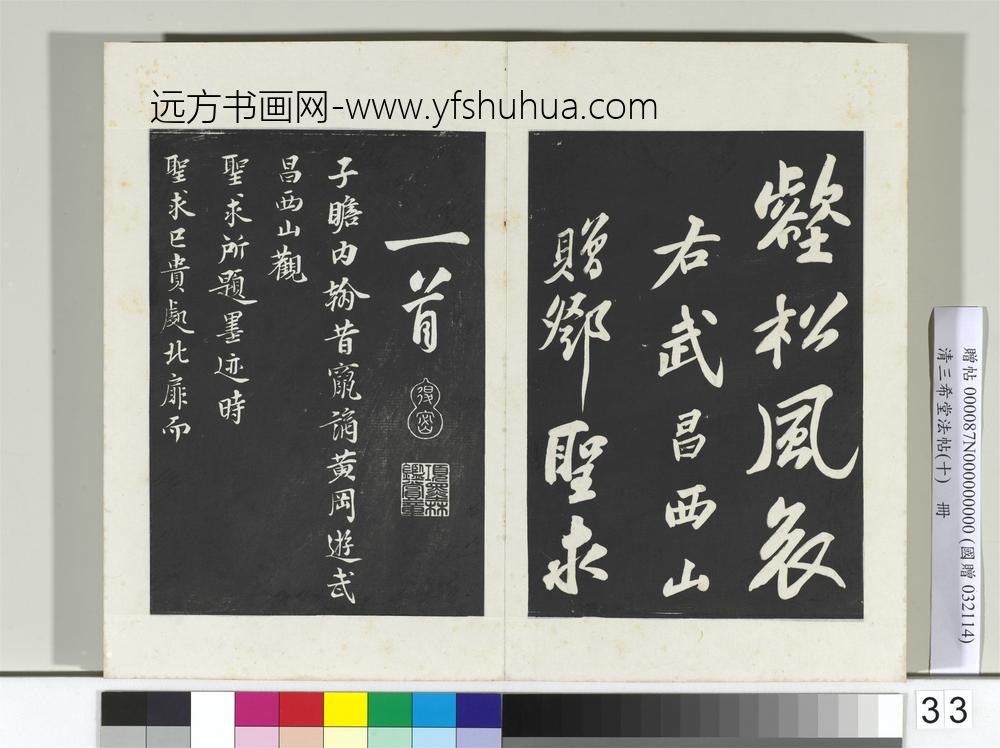 远方书画网-www.yfshuhua.com
壑松風哀
右武昌西山
贈鄧聖求
一首
子瞻内翰昔竄謫黄岡遊武
昌西山觀
聖求所題墨迹時
聖求已貴處北扉而
得密
項墨林鑑賞章
贈帖 000087N000000000 (國贈 032114)
清三希堂法帖(十) 冊
33